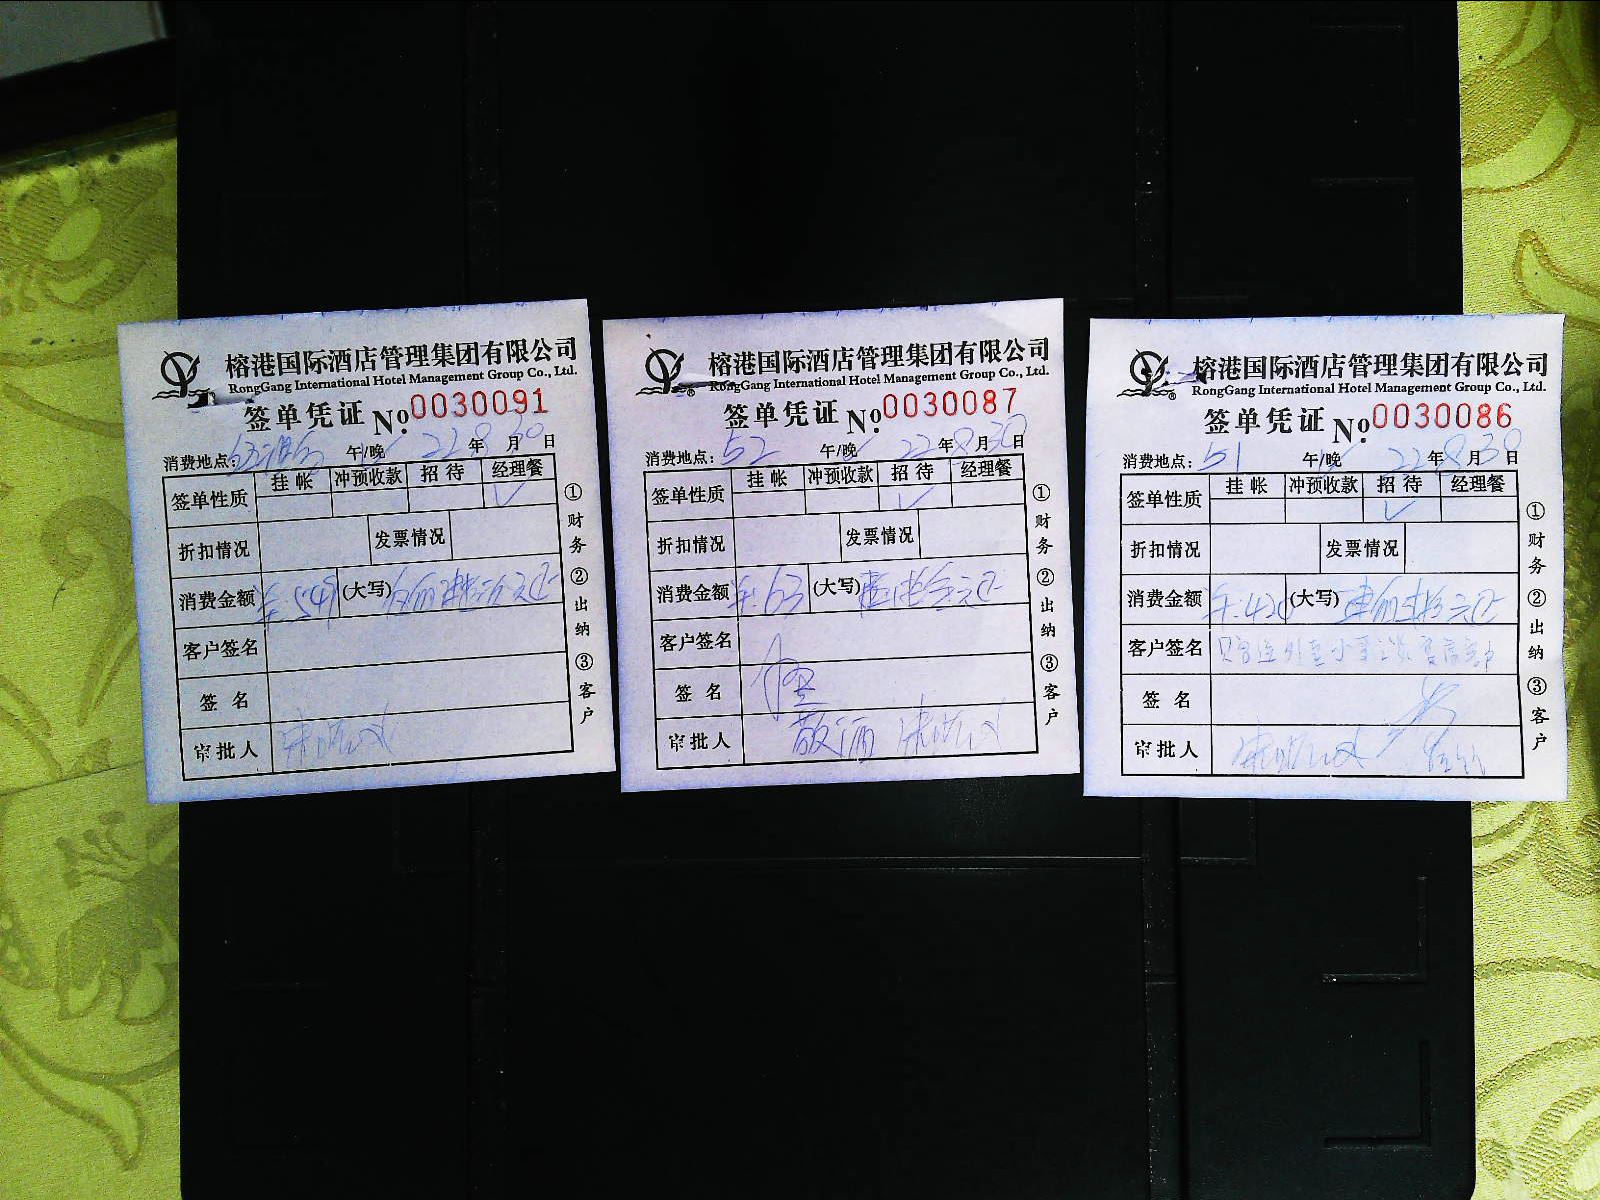 榕港国际酒店管理集团有限公司
RongGang International Hotel Management Group Co., Ltd.
签单凭证 No.0030091
消费地点: 午/晚 22年8月30日
签单性质 挂帐 冲预收款 招待 经理餐
✓
折扣情况 发票情况
消费金额 549 (大写)
客户签名
签名
审批人
①财务 ②出纳 ③客户
榕港国际酒店管理集团有限公司
RongGang International Hotel Management Group Co., Ltd.
签单凭证 No.0030087
消费地点: 52 午/晚 22年8月30日
签单性质 挂帐 冲预收款 招待 经理餐
✓
折扣情况 发票情况
消费金额 63 (大写)
客户签名
签名
审批人 敬酒
①财务 ②出纳 ③客户
榕港国际酒店管理集团有限公司
RongGang International Hotel Management Group Co., Ltd.
签单凭证 No.0030086
消费地点: 51 午/晚 22年8月30日
签单性质 挂帐 冲预收款 招待 经理餐
✓
折扣情况 发票情况
消费金额 (大写)
客户签名
签名
审批人
①财务 ②出纳 ③客户